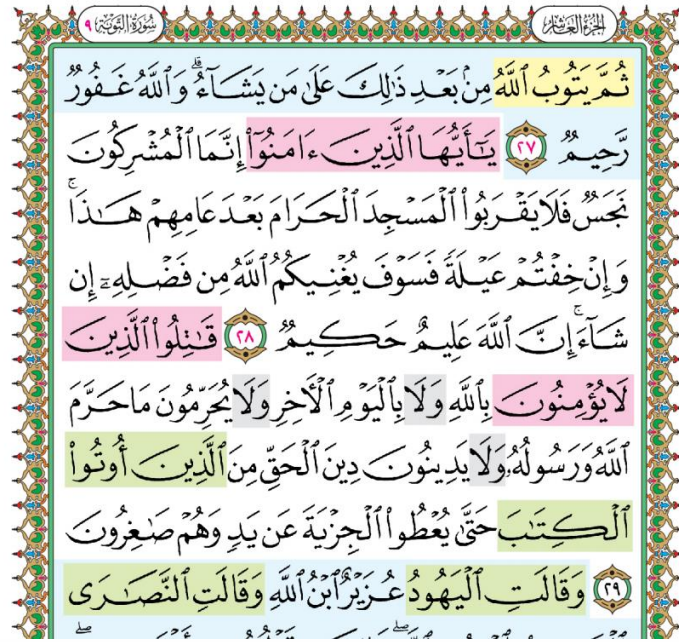 الجزء العاشر سورة التوبة ٩
ثُمَّ يَتُوبُ ٱللَّهُ مِنۢ بَعْدِ ذَٰلِكَ عَلَىٰ مَن يَشَآءُ ۗ وَٱللَّهُ غَفُورٌ
رَّحِيمٌ ٢٧ يَٰٓأَيُّهَا ٱلَّذِينَ ءَامَنُوٓا۟ إِنَّمَا ٱلْمُشْرِكُونَ
نَجَسٌ فَلَا يَقْرَبُوا۟ ٱلْمَسْجِدَ ٱلْحَرَامَ بَعْدَ عَامِهِمْ هَٰذَا ۚ
وَإِنْ خِفْتُمْ عَيْلَةً فَسَوْفَ يُغْنِيكُمُ ٱللَّهُ مِن فَضْلِهِۦٓ إِن
شَآءَ ۚ إِنَّ ٱللَّهَ عَلِيمٌ حَكِيمٌ ٢٨ قَٰتِلُوا۟ ٱلَّذِينَ
لَا يُؤْمِنُونَ بِٱللَّهِ وَلَا بِٱلْيَوْمِ ٱلْءَاخِرِ وَلَا يُحَرِّمُونَ مَا حَرَّمَ
ٱللَّهُ وَرَسُولُهُۥ وَلَا يَدِينُونَ دِينَ ٱلْحَقِّ مِنَ ٱلَّذِينَ أُوتُوا۟
ٱلْكِتَٰبَ حَتَّىٰ يُعْطُوا۟ ٱلْجِزْيَةَ عَن يَدٍ وَهُمْ صَٰغِرُونَ
٢٩ وَقَالَتِ ٱلْيَهُودُ عُزَيْرٌ ٱبْنُ ٱللَّهِ وَقَالَتِ ٱلنَّصَٰرَى